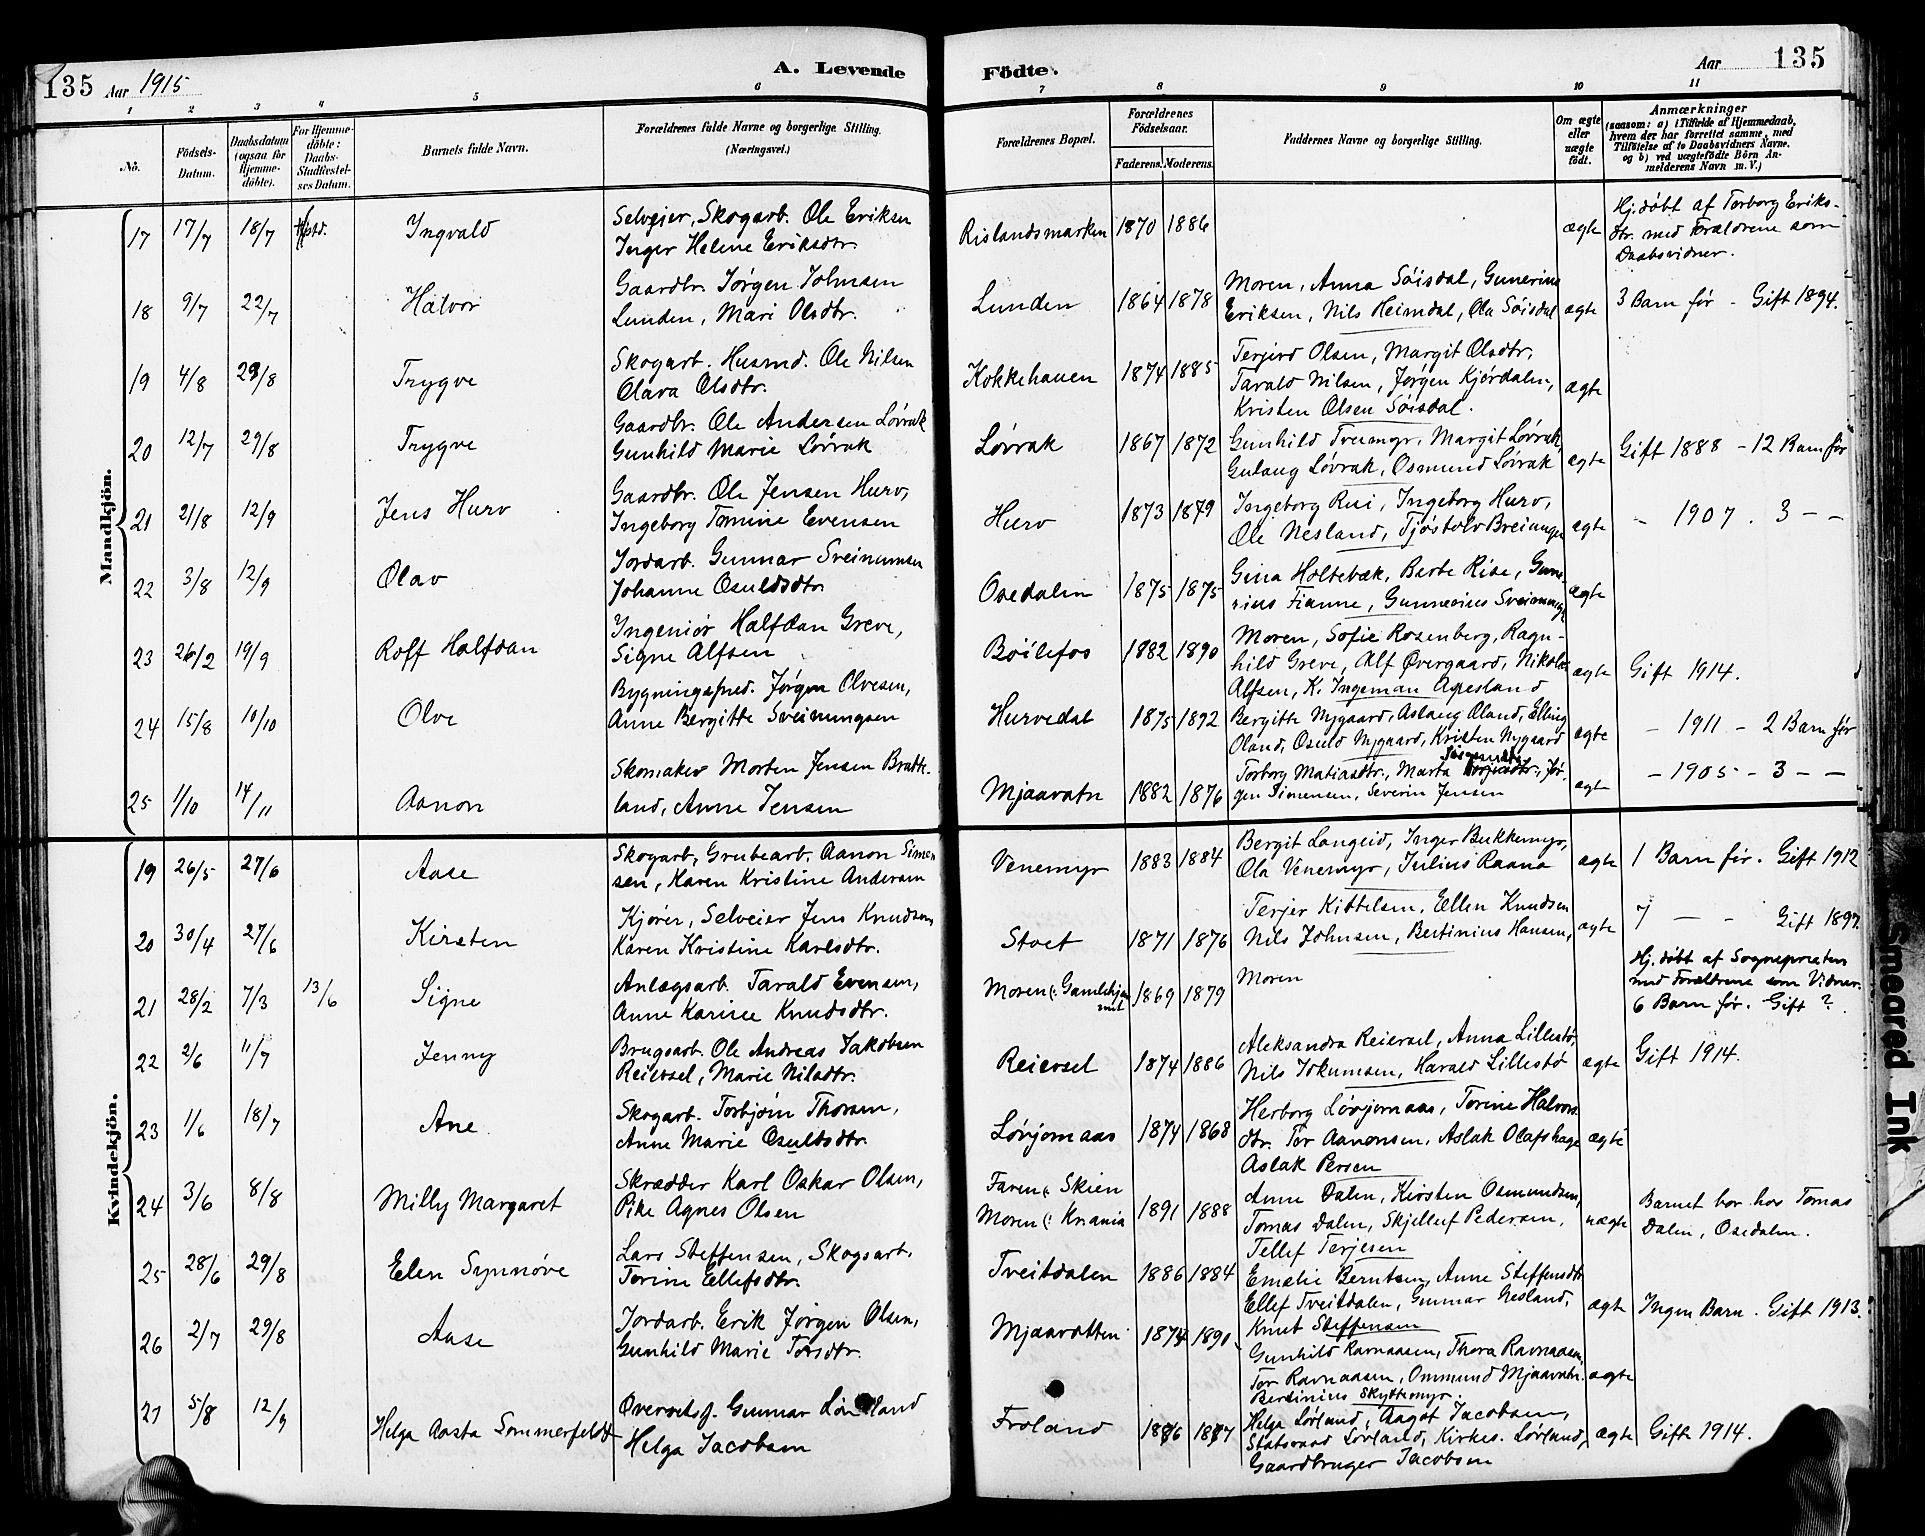 135 Aar 1915
A. Levende
Fødte.
Aar 135
1 2 3 4 5 6 7 8 9 10 11
No.
Fødsels-Datum.
Daabsdatum (ogsaa for Hjemme-døbte).
For Hjemme-døbte: Daabs-Stadfæstel-ses Datum.
Barnets fulde Navn.
Forældrenes fulde Navne og borgerlige Stilling. (Næringsvei.)
Forældrenes Bopæl.
Forældrenes Fødselsaar.
Faderens. Moderens.
Faddernes Navne og borgerlige Stilling.
Om ægte eller uægte født.
Anmærkninger
(saasom: a) i Tilfælde af Hjemmedaab, hvem der har forrettet samme, med Tilføielse af to Daabsvidners Navne. og b) ved uægtefødte Børn An-melderens Navn m. V.)
Mandkjön.
17 17/7 18/7 Ingvald
Selveier, Skogarb. Ole Eriksen
Inger Helene Eriksdtr.
Rislandsmarken 1870 1886 ægte
Hj.døbt af Torborg Eriks-
dtr. med Forældrene som
Daabsvidner.
18 9/7 22/7 Halvor
Gaardbr. Jørgen Johnsen
Lunden, Mari Olsdtr.
Lunden 1864 1878
Moren, Anna Söisdal, Gunerius
Eriksen, Nils Heimdal, Ola Söisdal
ægte 3 Barn før - Gift 1894.
19 4/8 29/8 Trygve
Skogarb. Husmd. Ole Nilsen
Olava Olsdtr.
Kokkehauen 1874 1885
Terjerd Olsen, Margit Olsdtr,
Tarald Nilsen, Jørgen Kjørdalen,
Kristen Olsen Söisdal.
ægte
20 12/7 29/8 Trygve
Gaardbr. Ole Andersen Lövrak
Gunhild Marie Lövrak
Lövrak 1867 1872
Gunhild Treimyr, Margit Lövrak,
Gulaug Lövrak, Osmund Lövrak
ægte Gift 1888 - 12 Barn før
21 21/8 12/9 Jens Hurv
Gaardbr. Ole Jensen Hurv,
Ingeborg Tomine Evensen
Hurv 1873 1879
Ingeborg Risi, Ingeborg Hurv,
Ole Nesland, Tjöstolv Breiunge
ægte - 1907. 3 - -
22 3/8 12/9 Olav
Jordarb. Gunnar Sveinunsen
Johanne Osuldsdtr.
Osedalen 1875 1875
Gina Holtebæk, Barte Rise, Gune-
rius Fianne, Gunnerius Sveinung
ægte
23 26/2 19/9 Rolf Halfdan
Ingeniør Halfdan Greve,
Signe Alfsen
Böilefos 1882 1890
Moren, Sofie Rosenberg, Ragn-
hild Greve, Alf Øvergaard, Nikolai
Alfsen, K. Ingeman Agesland
ægte Gift 1914.
24 15/8 10/10 Olve
Bygningssned. Jørgen Olvesen,
Anne Bergitte Sveinungsen
Hurvedal 1875 1892
Bergitte Nygaard, Aslaug Oland, Elling
Oland, Osuld Nygaard, Kristen Nygaard
ægte - 1911 - 2 Barn før
25 1/10 14/11 Aanon
Skomaker Morten Jensen Bratte-
land, Anne Jensen
Mjaavatn 1882 1876
Torborg Matiasdtr., Marta Jør-
gen Simensen, Severin Jensen
ægte - 1905 - 3 - -
Kvindekjön.
19 26/5 27/6 Aase
Skogarb, Grubearb. Aanon Simen
sen, Karen Kristine Andersen
Venemyr 1883 1884
Bergit Langeid, Inger Bukkemyr,
Ola Venemyr, Julius Raana
ægte 1 Barn før. Gift 1912
20 30/4 27/6 Kirsten
Kjører, Selveier Jens Knudsen
Karen Kristine Karlsdtr.
Stoet 1871 1876
Terjer Kittelsen, Ellen Knudsen
Nils Johnsen, Bertinius Hansen,
ægte 7 - - Gift 1897.
21 28/2 7/3 13/6 Signe
Anlægsarb. Tarald Evensen,
Anne Karine Knudsdtr.
1869 1879
Moren
Hj.døbt af Sognepresten
med Forældrene som Vidner.
6 Barn før. Gift ?
22 2/6 11/7 Jenny
Brugsarb. Ole Andreas Jakobsen
Reiersel, Marie Nilsdtr.
Reiersel 1874 1886
Aleksandra Reiersel, Anna Lillestø,
Nils Jokumsen, Harald Lillestø
ægte Gift 1914.
23 1/6 18/7 Ane
Skogarb. Torbjørn Thorsen,
Anne Marie Osuldsdtr.
Lövjomaas 1874 1868
Herborg Lövjomaas, Torine Halvors
dtr. Tor Aanonsen, Aslak Olafshage
Aslak Persen
ægte
24 3/6 8/8 Milly Margaret
Skrædder Karl Oskar Olsen,
Pike Agnes Olsen
Faren (: Skien
Moren (: Krania 1891 1888
Anne Dalen, Kirsten Osmundsen,
Tomas Dalen, Skjelluf Pedersen,
Tellef Terjesen
uægte Barnet bor hos Tomas
Dalen, Osedalen.
25 28/6 29/8 Elen Synnøve
Lars Steffensen, Skogsarb.
Torine Ellefsdtr.
Tveitdalen 1886 1884
Emelie Berntsen, Anne Steffensdtr
Ellef Tveitdalen, Gunnar Nesland,
Knut Steffensen
ægte Ingen Barn. Gift 1913.
26 2/7 29/8 Aase
Jordarb. Erik Jørgen Olsen,
Gunhild Marie Torsdtr.
Mjaavatten 1874 1890
Gunhild Ravnaasen, Thora Ravnaasen,
Tor Ravnaasen, Ommund Mjaavatn.
Bertinius Skyttemyr.
ægte
27 5/8 12/9 Helga Aasta Sommerfeldt
Overretssf. Gunnar Lövland
Helga Jacobsen
Froland 1886 1887
Helga Lövland, Aagot Jacobsen,
Statsraad Lövland, Kirkes. Lövland,
Gaardbruger Jacobsen
ægte Gift 1914.
Smeared Ink